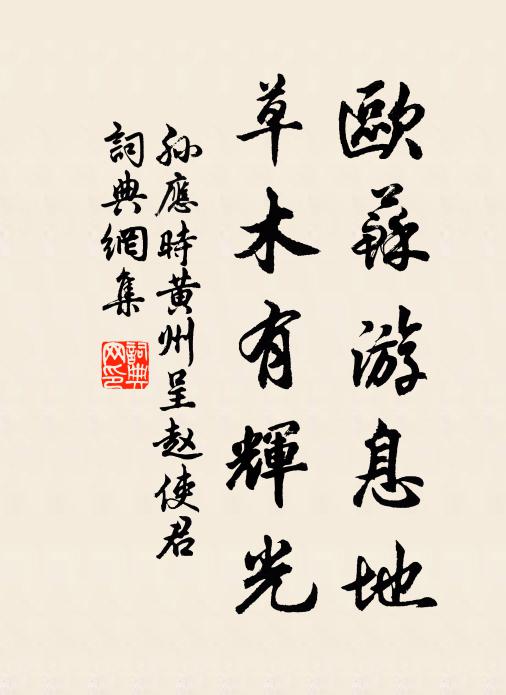 歐蘇游息地
草木有輝光
孫應時黄州呈赵使君
詞典網集
詞典
网印